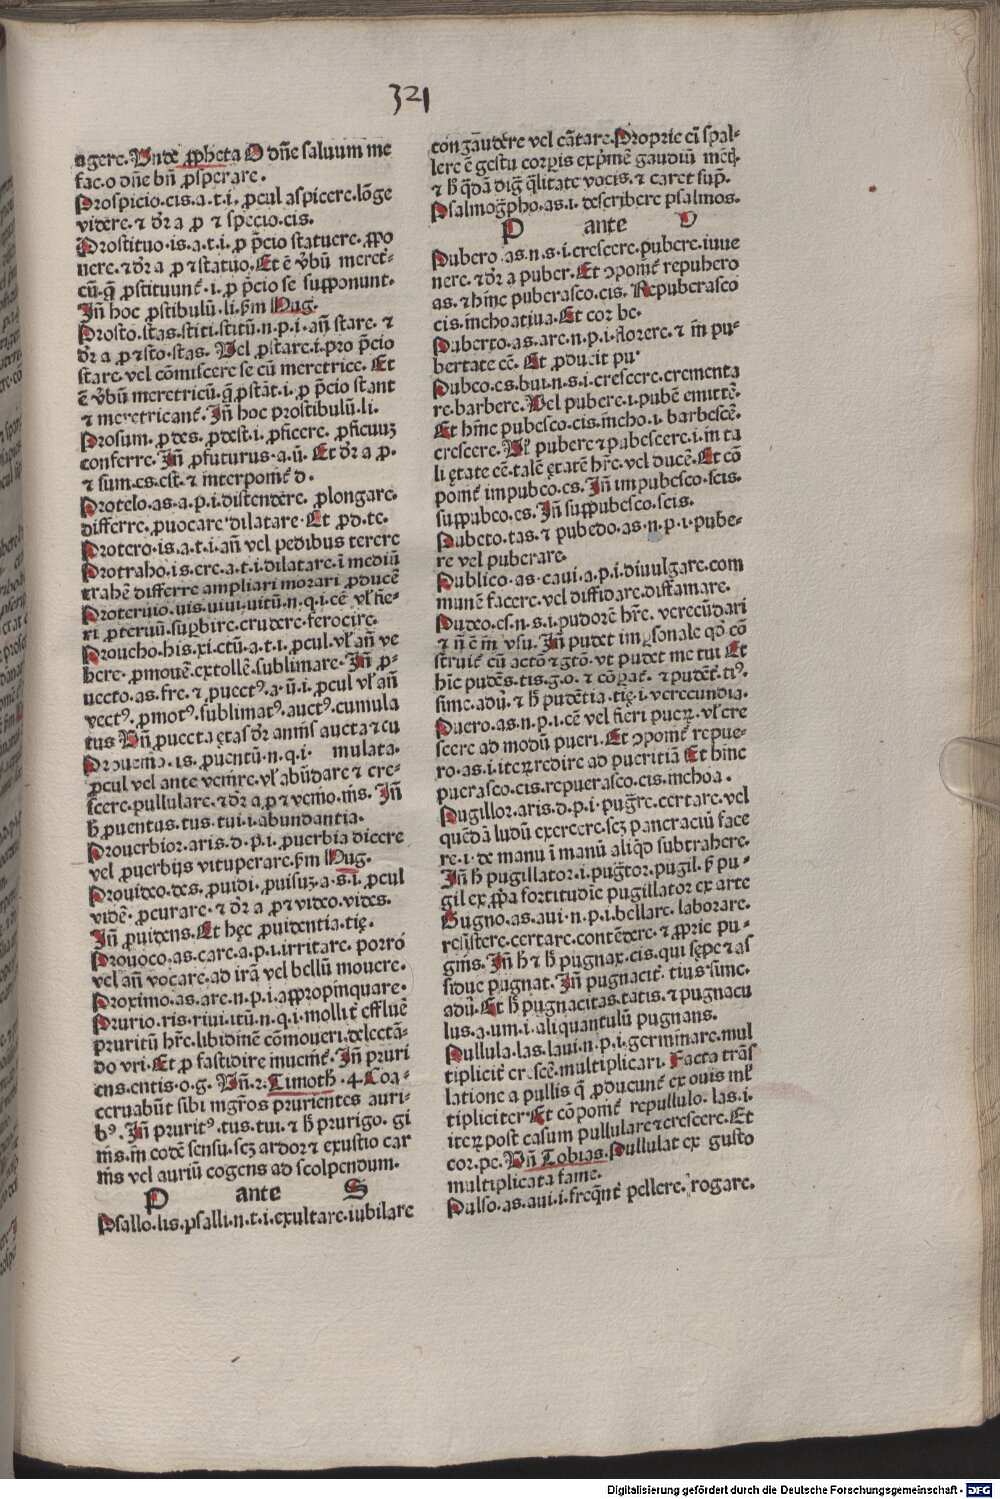 321
agere. Vnde ꝓpheta O dñe saluum me
fac. o dñe bñ ꝓsperare.
Prospicio. cis. a. t. i. ꝓcul aspicere. lõge
videre. ⁊ dr̃ a ꝓ ⁊ specio. cis.
Prostituo. is. a. t. i. ꝓ p̃cio statuere. ꝓpo
nere. ⁊ dr̃ a ꝓ ⁊ statuo. Et ẽ v̾bũ meret̾-
cũ. q̃ ꝓstituunt᷑. i. ꝓ p̃cio se supponunt.
Iñ hoc ꝓstibulũ. li. ẜm Hug.
Prosto. stas. stiti. stitũ. n. p. i. añ stare. ⁊
dr̃ a ꝓ ⁊ sto. stas. Vel ꝓstare. i. pro p̃cio
stare. vel cõmiscere se cũ meretrice. Et
ẽ v̾bũ meretricũ. q̃ ꝓstãt. i. ꝓ p̃cio stant
⁊ meretricant᷑. Iñ hoc prostibulũ. li.
Prosum. ꝓdes. ꝓdest. i. ꝓficere. ꝓficuuꝫ
conferre. Iñ ꝓfuturus. a. ũ. Et dr̃ a ꝓ.
⁊ sum. es. est. ⁊ interponit᷑ d.
Protelo. as. a. p. i. distendere. ꝓlongare.
differre. ꝓuocare dilatare. Et ꝓd. te.
Protero. is. a. t. i. añ vel pedibus terere
Protraho. is. ere. a. t. i. dilatare. ĩ mediũ
trahẽ differre ampliari morari ꝓducẽ
Proteruio. uis. uiui. uitũ. n. q. i. eẽ vl̾ fie-
ri ꝓteruũ. suꝑbire. crudere. ferocire.
Proueho. his. xi. ctũ. a. t. i. ꝓcul. vl̾ añ ve
here. ꝓmouẽ. extollẽ. sublimare. Iñ ꝓ-
uecto. as. fre. ⁊ ꝓuect⁹. a. ũ. i. ꝓcul vl̾ añ
vect⁹. ꝓmot⁹. sublimat⁹. auct⁹. cumula
tus Vñ ꝓuecta ętas dr̃ annis aucta ⁊ cu
Prouenio. is. ꝓuentũ. n. q. i. mulata.
ꝓcul vel ante venire. vl̾ abũdare ⁊ cre-
scere. pullulare. ⁊ dr̃ a ꝓ ⁊ venio. nis. Iñ
h̾ ꝓuentus. tus. tui. i. abundantia.
Prouerbior. aris. d. p. i. ꝓuerbia dicere
vel ꝓuerbijs vituperare. ẜm Hug.
Prouideo. des. ꝓuidi. ꝓuisuꝫ. a. s. i. ꝓcul
vidẽ. ꝓcurare. ⁊ dr̃ a ꝓ ⁊ video. vides.
Iñ ꝓuidens. Et hęc ꝓuidentia. tię.
Prouoco. as. care. a. p. i. irritare. porro
vel añ vocare. ad irã vel bellũ mouere.
Proximo. as. are. n. p. i. appropinquare.
Prurio. ris. riui. itũ. n. q. i. mollit̾ effluẽ
pruritũ hr̃e. libidinẽ cõmoueri. delectã-
do vri. Et ꝓ fastidire inuenit᷑. Iñ pruri
ens. entis. o. g. Vñ. 2. Timoth. 4. Coa-
ceruabũt sibi mgr̃os prurientes auri-
b⁹. Iñ prurit⁹. tus. tui. ⁊ h̾ prurigo. gi
nis. in eodẽ sensu. scꝫ ardor ⁊ exustio car
nis vel auriũ cogens ad scolpendum.
P ante S
Psallo. lis. psalli. n. t. i. exultare. iubilare
congaudere vel cãtare. Proprie eĩ spal-
lere ẽ gestu corꝑis exp̃mẽ gaudiũ mẽtꝭ.
⁊ h̾ q̃dã dig̾ q̃litate vocis. ⁊ caret sup̃.
Psalmog̃pho. as. i. describere psalmos.
P ante V
Pubero. as. n. s. i. crescere. pubere. iuue
nere. ⁊ dr̃ a puber. Et ꝯponit᷑ repubero
as. ⁊ hinc puberasco. cis. Repuberasco
cis. inchoatiua. Et cor be.
Puberto. as. are. n. p. i. florere. ⁊ in pu-
bertate eẽ. Et ꝓducit pu.
Pubeo. es. bui. n. s. i. crescere. crementa
re. barbere. Vel pubere. i. pubẽ emittẽ-
Et hinc pubesco. cis. incho. i. barbescẽ.
crescere. Vl̾ pubere ⁊ pubescere. i. in ta
li ętate eẽ. talẽ ętatẽ hr̃e. vel ducẽ. Et cõ
ponit᷑ impubeo. es. Iñ impubesco. scis.
suppubeo. es. Iñ suppubesco. scis.
Pubeto. tas. ⁊ pubedo. as. n. p. i. pube-
re vel puberare.
Publico. as. caui. a. p. i. diuulgare. com
munẽ facere. vel diffidare. diffamare.
Pudeo. es. n. s. i. pudorẽ hr̃e. verecũdari
⁊ nõ ẽ in vsu. Iñ pudet imꝑsonale qd̾ cõ
struit᷑ cũ actõ ⁊ gtõ. vt pudet me tui Et
hĩc pudẽs. tis. g. o. ⁊ cõꝑat᷑. ⁊ pudẽt̾. ti⁹.
sime. adũ. ⁊ h̾ pudẽtia. tię. i. verecundia.
Puero. as. n. p. i. eẽ vel fieri pueꝝ. vl̾ cre
scere ad modũ pueri. Et ꝯponit᷑ repue-
ro. as. i. iteꝝ redire ad pueritiã Et hinc
puerasco. cis. repuerasco. cis. inchoa.
Pugillor. aris. d. p. i. pug̃re. certare. vel
quẽdã ludũ exercere. scꝫ pancraciũ face
re. i. de manu ĩ manũ aliq̾d subtrahere.
Iñ h̾ pugillator. i. pug̃tor. pugil. ẜ pu-
gil ex ꝓp̃a fortitudĩe pugillator ex arte
Pugno. as. aui. n. p. i. bellare. laborare.
resistere. certare. contẽdere. ⁊ ꝓprie pu-
gnis. Iñ h̾ ⁊ h̾ pugnax. cis. qui sępe ⁊ as
sidue pugnat. Iñ pugnacit᷑. tius sime.
adũ. Et h̾ pugnacitas. tatis. ⁊ pugnacu
lus. a. um. i. aliquantulũ pugnans.
Pullula. las. laui. n. p. i. germinare. mul
tiplicit̾ crescẽ. multiplicari. Facta trãs
latione a pullis q̃ ꝓducunt᷑ ex ouis ml̾
tipliciter. Et cõponit᷑ repullulo. las. i.
iteꝝ post casum pullulare ⁊ crescere. Et
cor. pe. Vñ Tobias. Pullulat ex gusto
multiplicata fame.
Pulso. as. aui. i. freq̃nt̾ pellere. rogare.
Digitalisierung gefördert durch die Deutsche Forschungsgemeinschaft - DFG